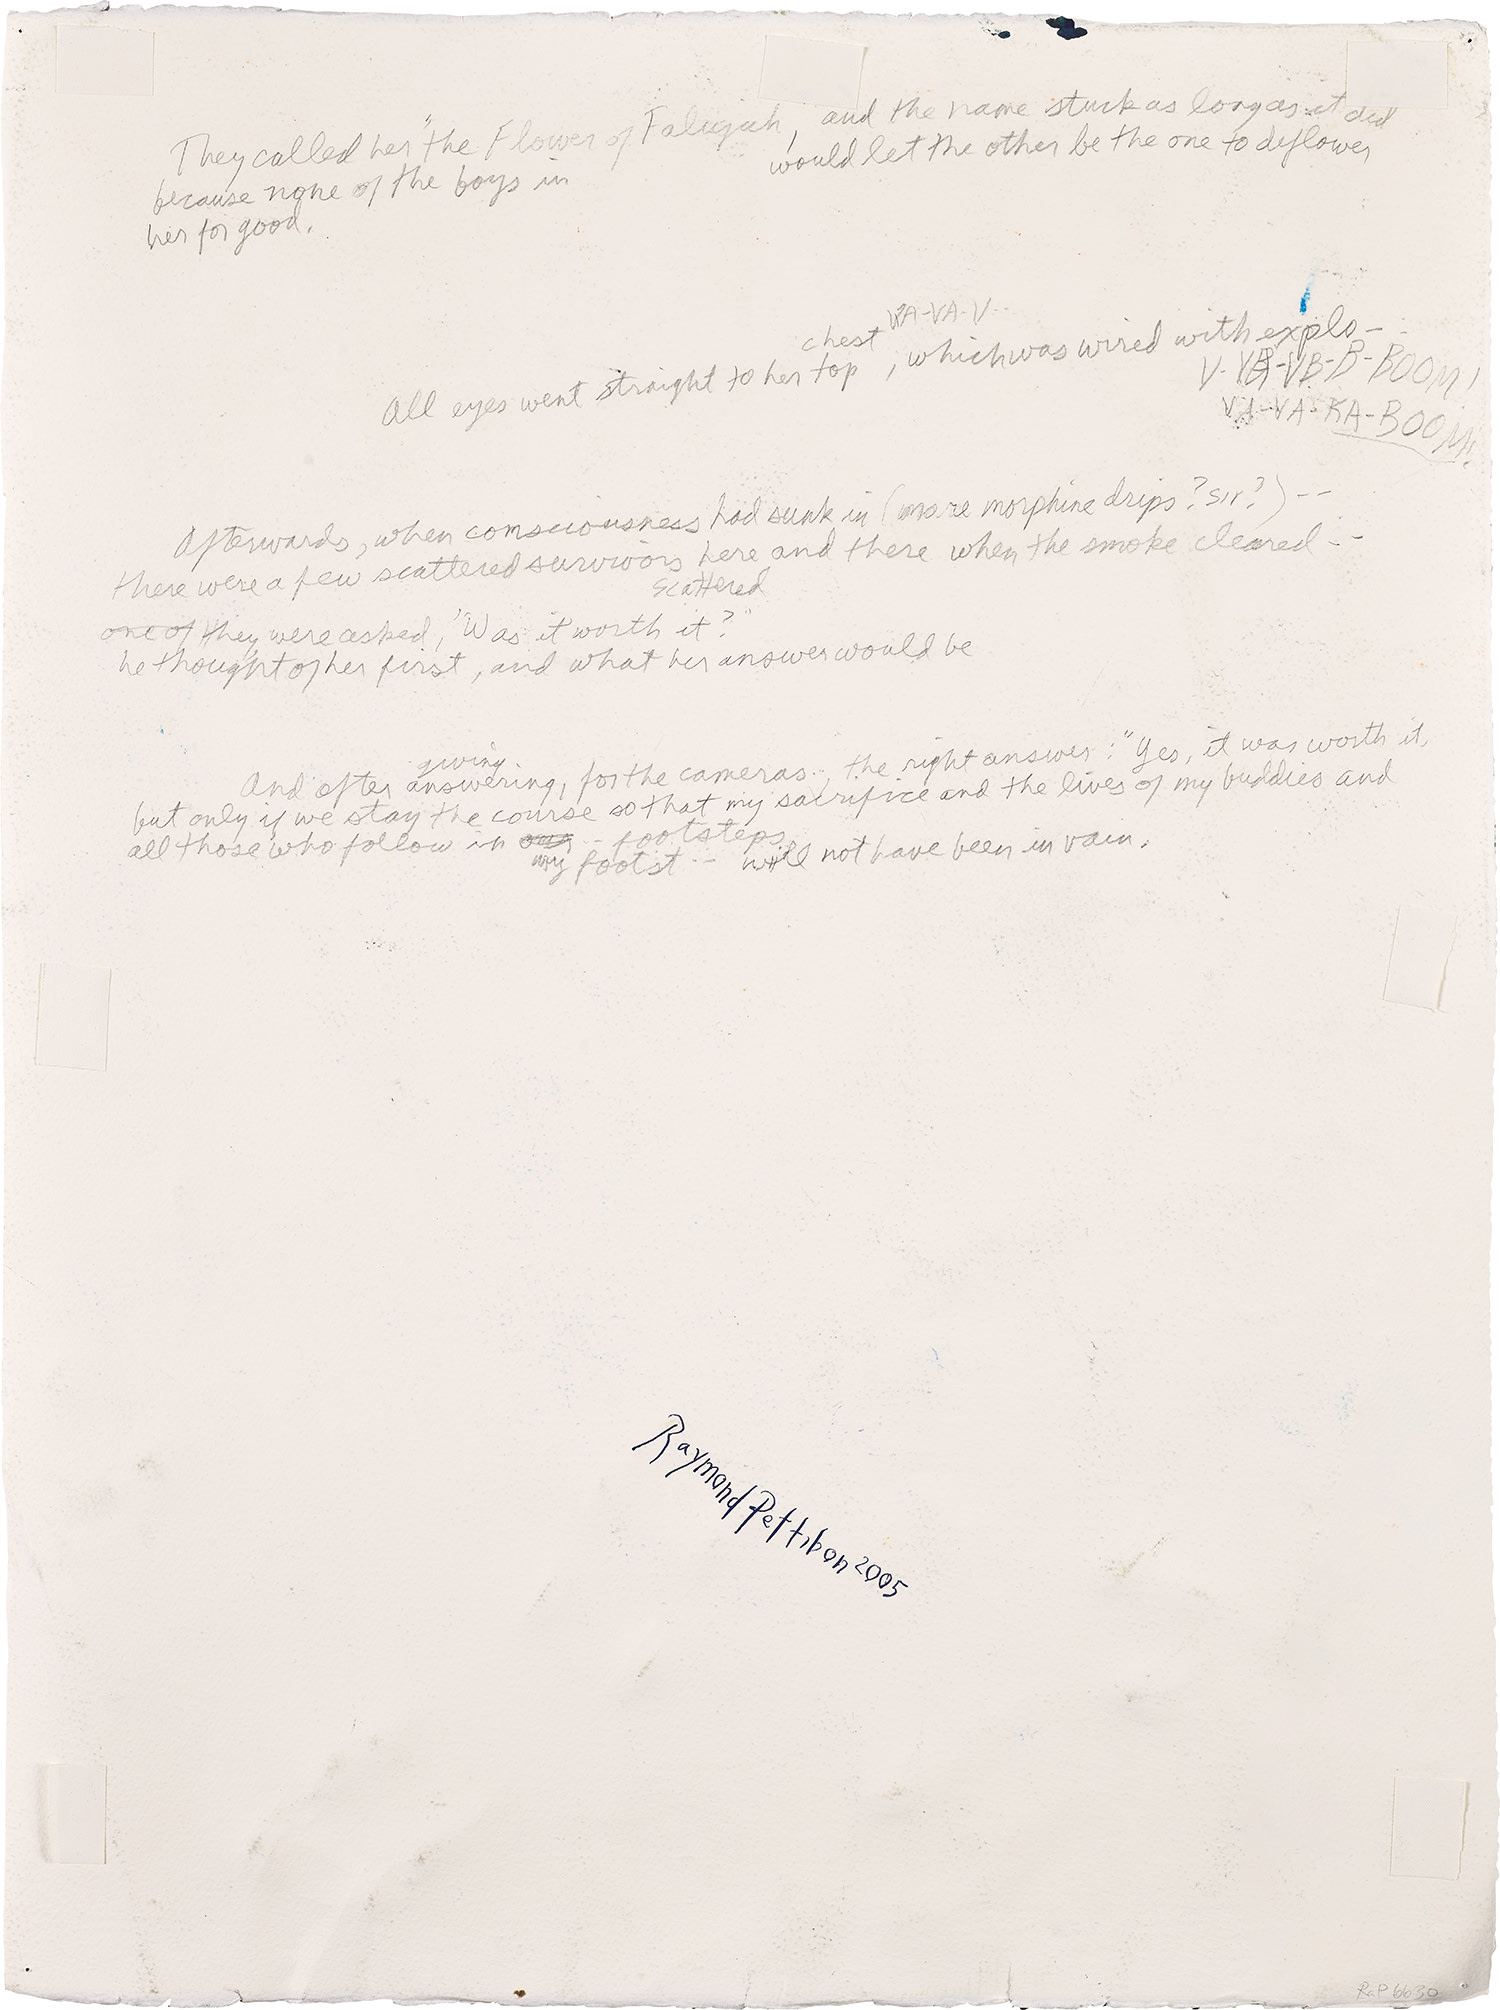 They called her "the Flower of Falujah, and the name stuck as long as it did
because none of the boys in would let the other be the one to deflower
her for good.
VA-VA-V--
chest
All eyes went straight to her top, which was wired with explo--
V-VB-VB-B-BOOM!
VA-VA-KA-BOOM!
Afterwards, when comsciousness had sunk in (more morphine drips? Sir?)--
there were a few scattered survivors here and there when the smoke cleared--
scattered
one of they were asked, "Was it worth it?"
he thought of her first, and what her answer would be
giving
And after answering, for the cameras, the right answer: "Yes, it was worth it,
but only if we stay the course so that my sacrifice and the lives of my buddies and
all those who follow in our -- footsteps
my footst -- will not have been in vain.
Raymond Pettibon 2005
RaP 6630